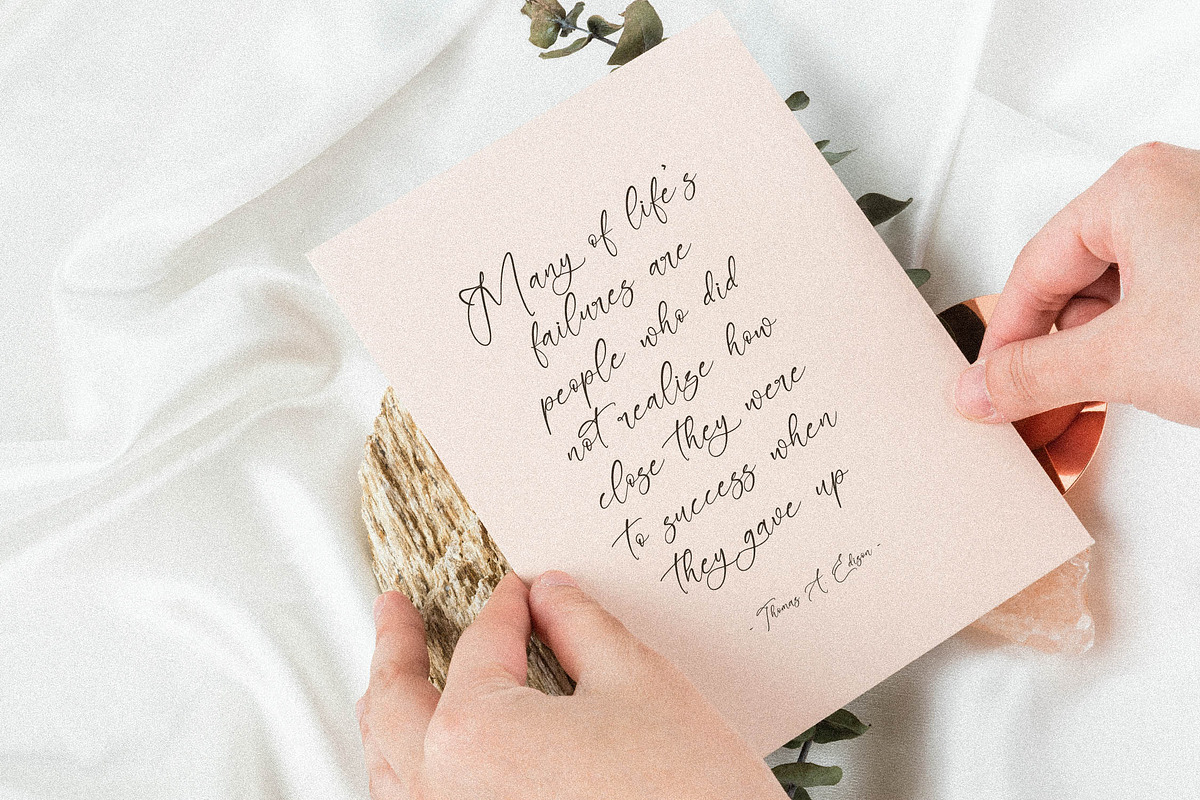 Many of life's
failures are
people who did
not realize how
close they were
to success when
they gave up
- Thomas A Edison -